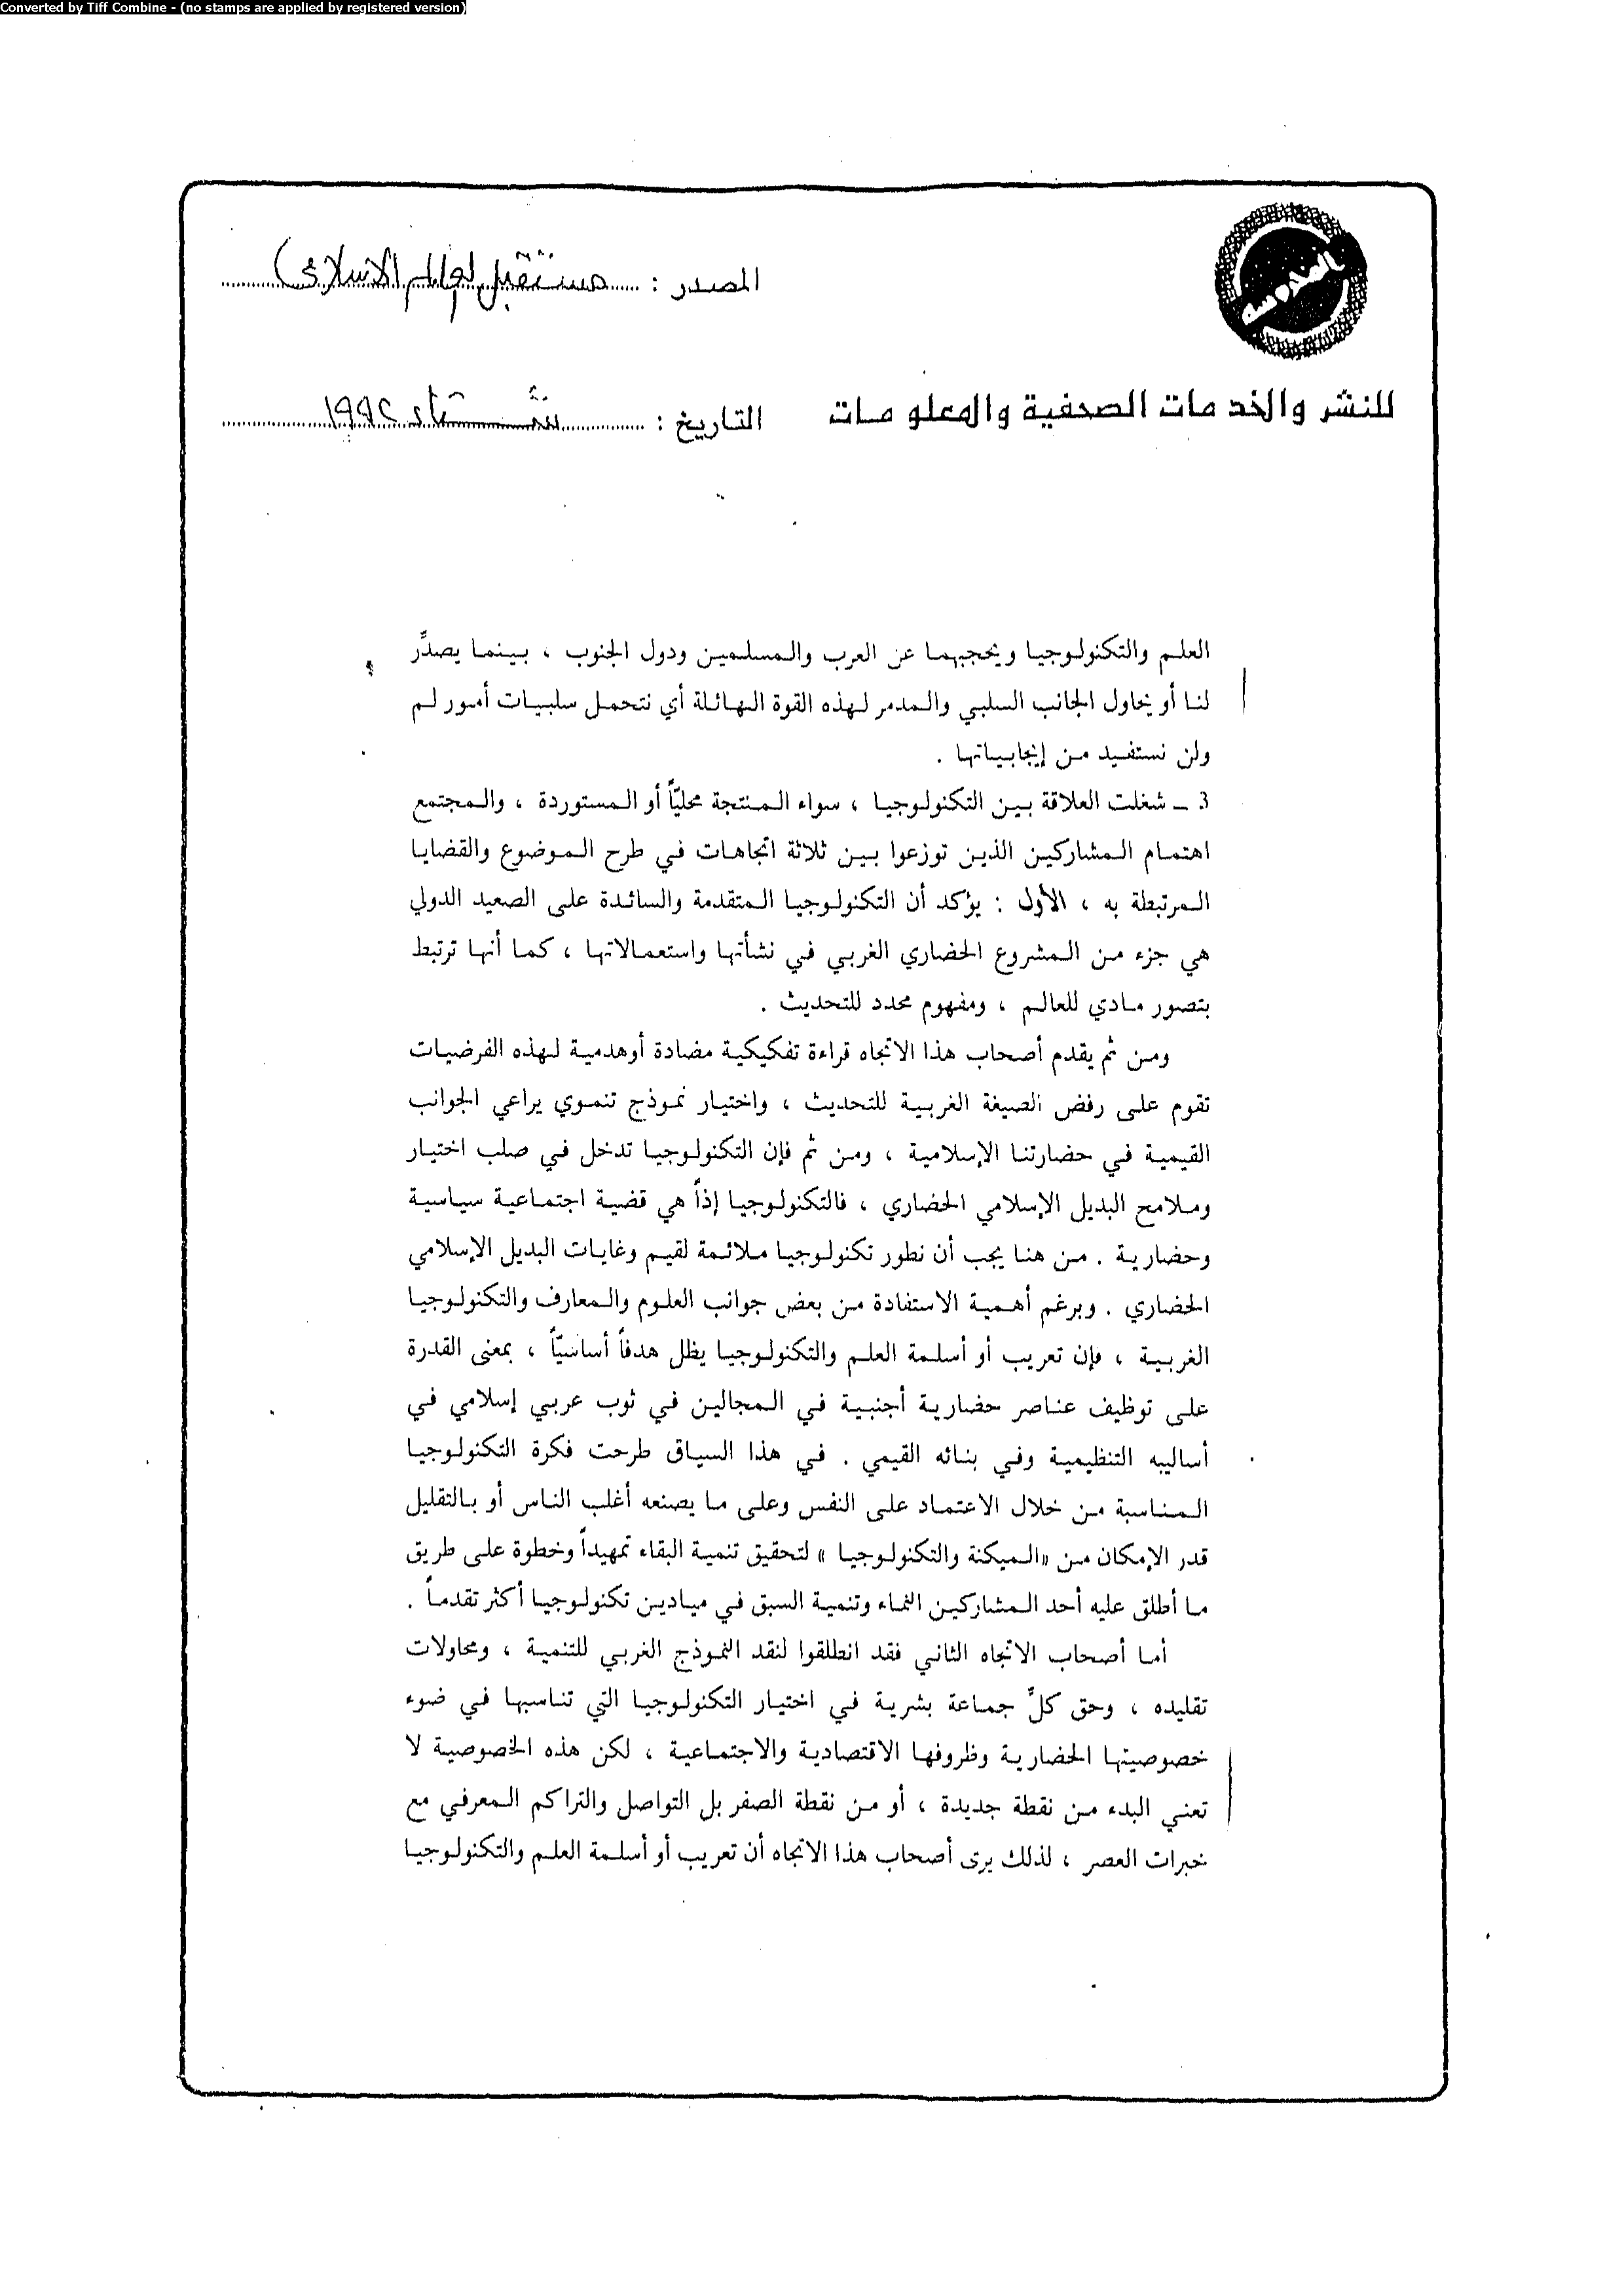 Converted by Tiff Combine - (no stamps are applied by registered version)
المصدر : مستقبل العالم الإسلامي
للنشر والخدمات الصحفية والمعلومات
التاريخ : شتاء ١٩٩٢
العلم والتكنولوجيا ويحجبهما عن العرب والمسلمين ودول الجنوب ، بينما يصدِّر
لنا أو يحاول الجانب السلبي والمدمر لهذه القوة الهائلة أي نتحمل سلبيات أمور لم
ولن نستفيد من إيجابياتها .
3 ــ شغلت العلاقة بين التكنولوجيا ، سواء المنتجة محليّاً أو المستوردة ، والمجتمع
اهتمام المشاركين الذين توزعوا بين ثلاثة اتجاهات في طرح الموضوع والقضايا
المرتبطة به ، الأول : يؤكد أن التكنولوجيا المتقدمة والسائدة على الصعيد الدولي
هي جزء من المشروع الحضاري الغربي في نشأتها واستعمالاتها ، كما أنها ترتبط
بتصور مادي للعالم ، ومفهوم محدد للتحديث .
ومن ثم يقدم أصحاب هذا الاتجاه قراءة تفكيكية مضادة أوهدمية لهذه الفرضيات
تقوم على رفض الصيغة الغربية للتحديث ، واختيار نموذج تنموي يراعي الجوانب
القيمية في حضارتنا الإسلامية ، ومن ثم فإن التكنولوجيا تدخل في صلب اختيار
وملامح البديل الإسلامي الحضاري ، فالتكنولوجيا إذاً هي قضية اجتماعية سياسية
وحضارية . من هنا يجب أن نطور تكنولوجيا ملائمة لقيم وغايات البديل الإسلامي
الحضاري . وبرغم أهمية الاستفادة من بعض جوانب العلوم والمعارف والتكنولوجيا
الغربية ، فإن تعريب أو أسلمة العلم والتكنولوجيا يظل هدفاً أساسيّاً ، بمعنى القدرة
على توظيف عناصر حضارية أجنبية في المجالين في ثوب عربي إسلامي في
أساليبه التنظيمية وفي بنائه القيمي . في هذا السياق طرحت فكرة التكنولوجيا
المناسبة من خلال الاعتماد على النفس وعلى ما يصنعه أغلب الناس أو بالتقليل
قدر الإمكان من «الميكنة والتكنولوجيا» لتحقيق تنمية البقاء تمهيداً وخطوة على طريق
ما أطلق عليه أحد المشاركين النماء وتنمية السبق في ميادين تكنولوجيا أكثر تقدماً .
أما أصحاب الاتجاه الثاني فقد انطلقوا لنقد النموذج الغربي للتنمية ، ومحاولات
تقليده ، وحق كلِّ جماعة بشرية في اختيار التكنولوجيا التي تناسبها في ضوء
خصوصيتها الحضارية وظروفها الاقتصادية والاجتماعية ، لكن هذه الخصوصية لا
تعني البدء من نقطة جديدة ، أو من نقطة الصفر بل التواصل والتراكم المعرفي مع
خبرات العصر ، لذلك يرى أصحاب هذا الاتجاه أن تعريب أو أسلمة العلم والتكنولوجيا